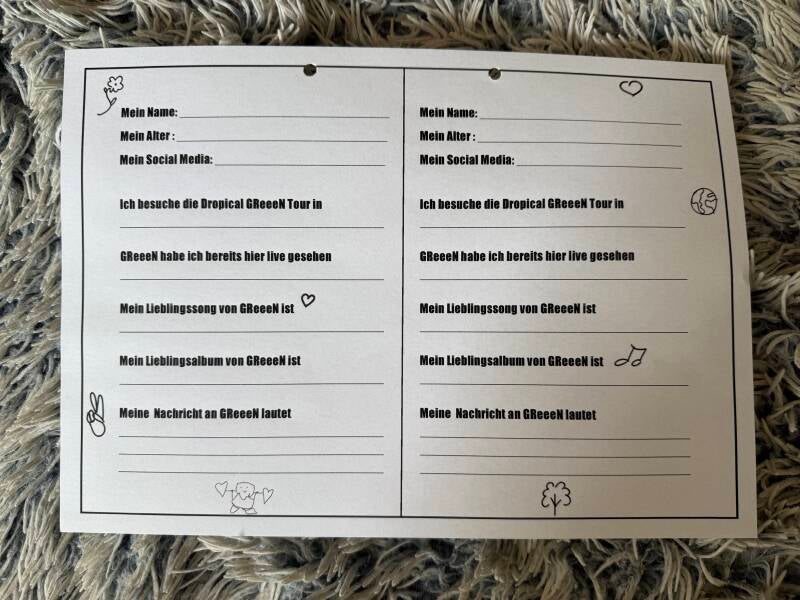 Mein Name:
Mein Alter :
Mein Social Media:
Ich besuche die Dropical GReeeN Tour in
GReeeN habe ich bereits hier live gesehen
Mein Lieblingssong von GReeeN ist
Mein Lieblingsalbum von GReeeN ist
Meine Nachricht an GReeeN lautet
Mein Name:
Mein Alter :
Mein Social Media:
Ich besuche die Dropical GReeeN Tour in
GReeeN habe ich bereits hier live gesehen
Mein Lieblingssong von GReeeN ist
Mein Lieblingsalbum von GReeeN ist
Meine Nachricht an GReeeN lautet